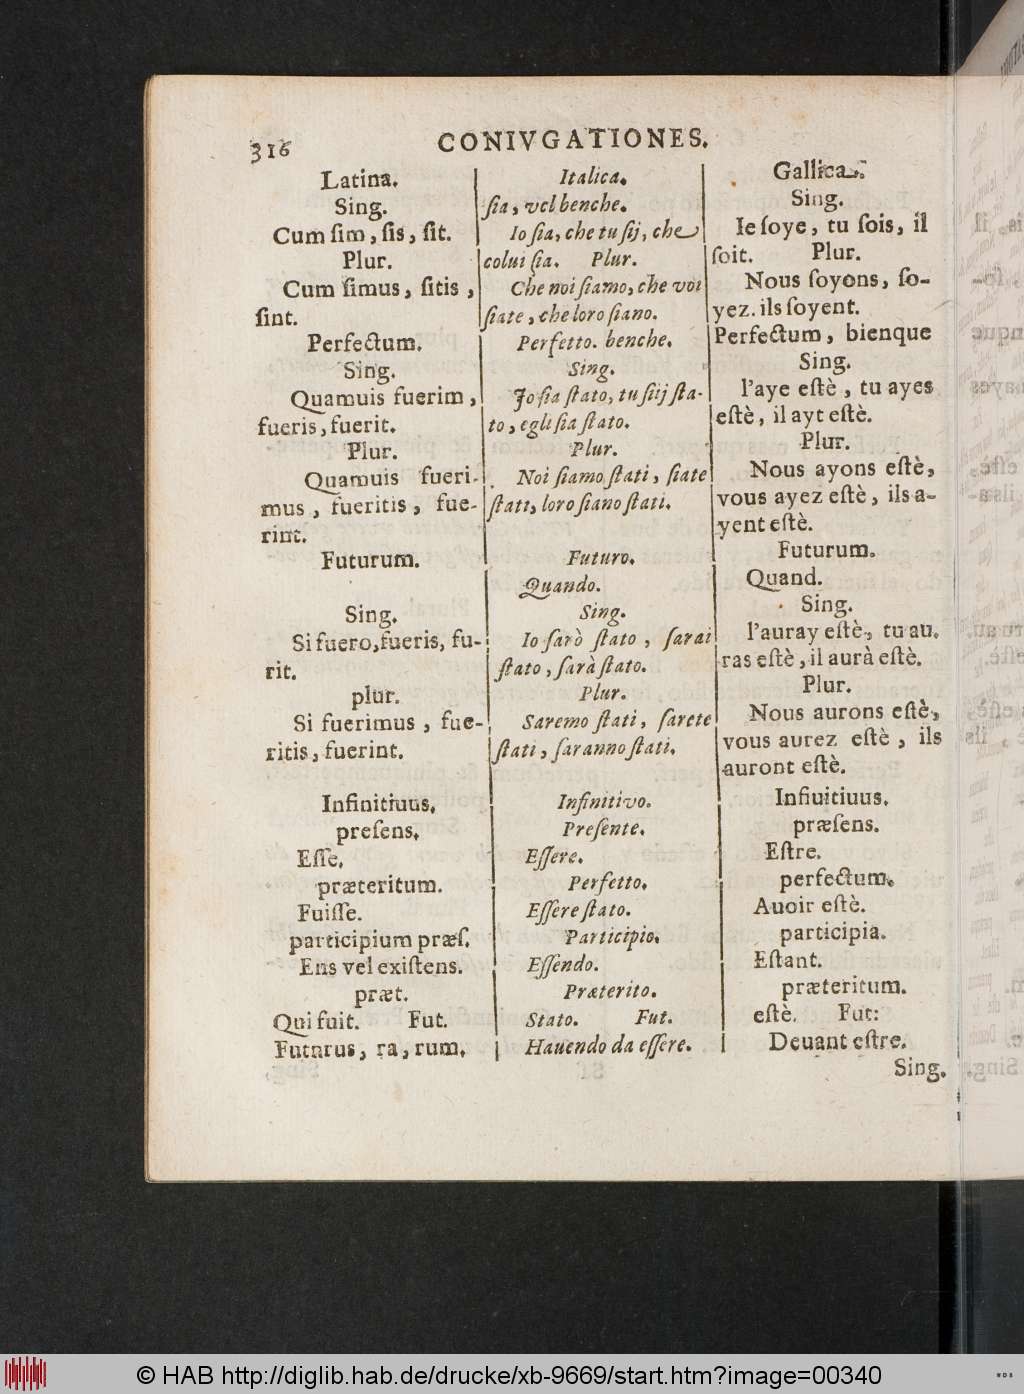 316
CONIVGATIONES.
Latina.
Sing.
Cum ſim, ſis, ſit.
Plur.
Cum ſimus, ſitis,
ſint.
Perfectum.
Sing.
Quamuis fuerim,
fueris, fuerit.
Plur.
Quamuis fueri-
mus, fueritis, fue-
rint.
Futurum.
Sing.
Si fuero, fueris, fu-
rit.
plur.
Si fuerimus, fue-
ritis, fuerint.
Infinitiuus.
preſens.
Eſſe.
præteritum.
Fuiſſe.
participium præſ.
Ens vel exiſtens.
præt.
Qui fuit. Fut.
Futurus, ra, rum.
Italica.
ſia, vel benche.
Io ſia, che tu ſij, che
colui ſia. Plur.
Che noi ſiamo, che voi
ſiate, che loro ſiano.
Perfetto. benche.
Sing.
Io ſia ſtato, tu ſiij ſta-
to, egli ſia ſtato.
Plur.
Noi ſiamo ſtati, ſiate
ſtati, loro ſiano ſtati.
Futuro.
Quando.
Sing.
Io ſarò ſtato, ſarai
ſtato, ſarà ſtato.
Plur.
Saremo ſtati, ſarete
ſtati, ſaranno ſtati.
Infinitivo.
Preſente.
Eſſere.
Perfetto.
Eſſere ſtato.
Participio.
Eſſendo.
Præterito.
Stato. Fut.
Hauendo da eſſere.
Gallica.
Sing.
Ie ſoye, tu ſois, il
ſoit. Plur.
Nous ſoyons, ſo-
yez. ils ſoyent.
Perfectum, bienque
Sing.
l'aye eſtè, tu ayes
eſtè, il ayt eſtè.
Plur.
Nous ayons eſtè,
vous ayez eſtè, ils a-
yent eſtè.
Futurum.
Quand.
Sing.
l'auray eſtè, tu au.
ras eſtè, il aurà eſtè.
Plur.
Nous aurons eſtè,
vous aurez eſtè, ils
auront eſtè.
Infiuitiuus.
præſens.
Eſtre.
perfectum.
Auoir eſtè.
participia.
Eſtant.
præteritum.
eſtè. Fut:
Deuant eſtre.
Sing.
© HAB http://diglib.hab.de/drucke/xb-9669/start.htm?image=00340